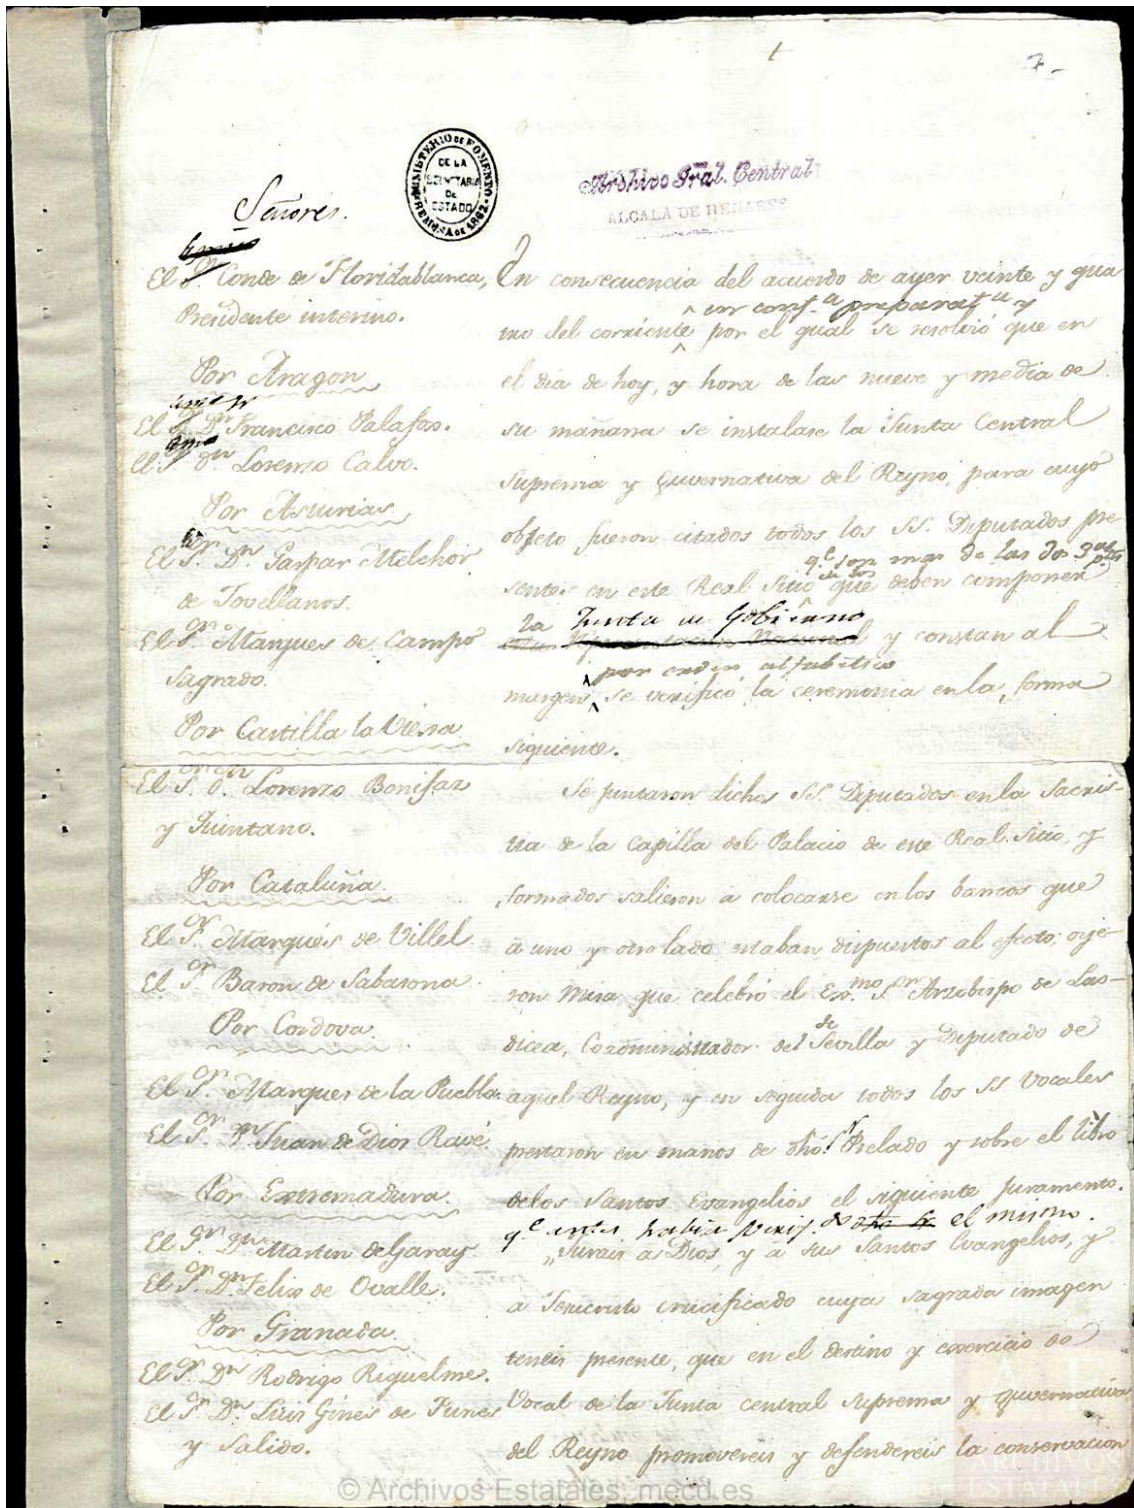 1
7-
MINISTERIO DE FOMENTO
DE LA
SECRETARIA
DE
ESTADO
Archivo Gral. Central
ALCALÁ DE HENARES
Señores.
El Sr. Conde de Floridablanca,
Presidente interino.
Por Aragon
El Sr. Dn. Francisco Palafox.
El Sr. Dn. Lorenzo Calvo.
Por Asturias
El Sr. Dn. Gaspar Melchor
de Jovellanos.
El Sr. Marques de Campo
Sagrado.
Por Castilla la Vieja
El Sr. Dn. Lorenzo Bonifaz
y Quintano.
Por Cataluña
El Sr. Marqués de Villel
El Sr. Baron de Sabasona
Por Cordova
El Sr. Marques de la Puebla.
El Sr. Dn. Juan de Dios Ravé.
Por Extremadura.
El Sr. Dn. Martin de Garay.
El Sr. Dn. Felix de Ovalle.
Por Granada.
El Sr. Dn. Rodrigo Riquelme.
El Sr. Dn. Luis Gines de Funes
y Salido.
En consecuencia del acuerdo de ayer veinte y qua
en conf.a preparat.a y
tro del corriente por el qual se resolvió que en
el dia de hoy, y hora de las nueve y media de
su mañana se instalase la Junta Central
Suprema y Guvernativa del Reyno, para cuyo
objeto fueron citados todos los SS. Diputados pre-
q.e son mas de las dos 3.as p.tes
de los
sentes en este Real Sitio que deben componer
la Junta de Gobierno
y constan al
por orden alfabetico
margen, se verificó la ceremonia en la forma
siguiente.
Se juntaron dichos SS. Diputados en la Sacris-
tia de la Capilla del Palacio de este Real Sitio, y
formados salieron a colocarse en los bancos que
a uno y otro lado estaban dispuestos al efecto; oye-
ron Misa, que celebró el Exmo. Sr. Arzobispo de Lao-
dicea, Coadministrador del de Sevilla y Diputado de
aquel Reyno, y en seguida todos los SS Vocales
prestaron en manos de dho. Sr. Prelado y sobre el libro
de los Santos Evangelios el siguiente juramento.
q.e antes habia el mismo.
"Jurais a Dios, y a sus Santos Evangelios, y
a Jesucristo crucificado cuya sagrada imagen
teneis presente, que en el destino y exercicio de
Vocal de la Junta central Suprema y Guvernativa
del Reyno promovereis y defendereis la conservacion
© Archivos Estatales, mecd.es
ARCHIVOS
ESTATALES